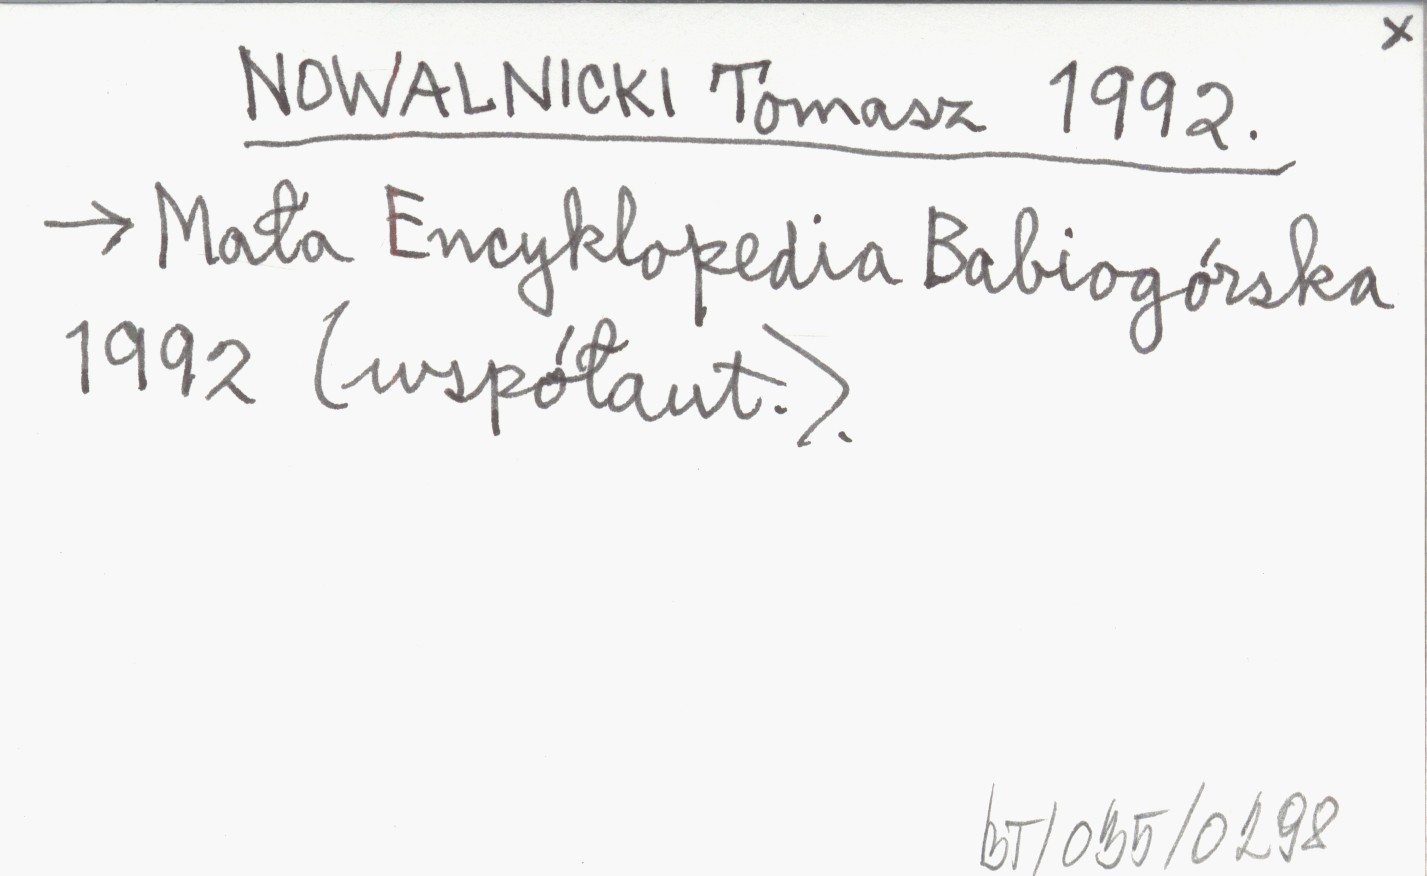 x
NOWALNICKI Tomasz 1992.
→ Mała Encyklopedia Babiogórska
1992 (współaut.).
bT/035/0298